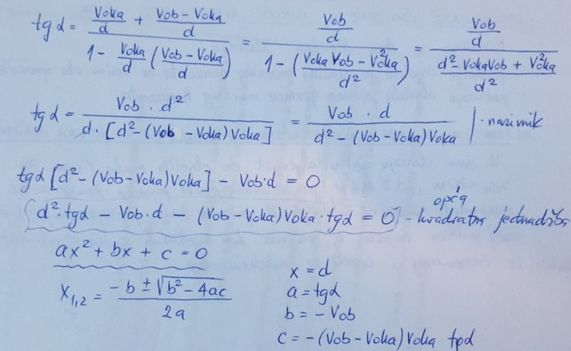 tg α = (Voka/d + (Vob - Voka)/d) / (1 - Voka/d ((Vob - Voka)/d)) = (Vob/d) / (1 - ((Voka Vob - V²oka)/d²)) = (Vob/d) / ((d² VokaVob + V²oka)/d²)
tg α = (Vob · d²) / (d · [d² - (Vob - Voka) Voka]) = (Vob · d) / (d² - (Vob - Voka) Voka) | · nazivnik
tg α [d² - (Vob - Voka) Voka] - Vob · d = 0
d² · tg α - Vob · d - (Vob - Voka) Voka · tg α = 0 - opća kvadratna jednadžba
ax² + bx + c = 0
x₁,₂ = (-b ± √(b² - 4ac)) / 2a
x = d
a = tg α
b = - Vob
c = - (Vob - Voka) Voka tg α